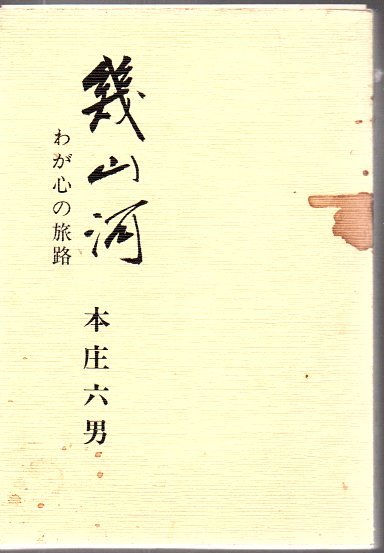 幾山河
わが心の旅路
本庄六男